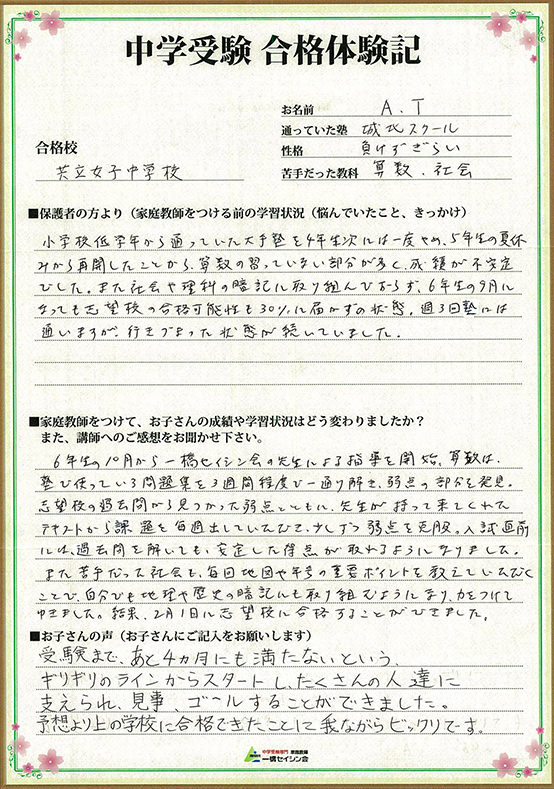 中学受験 合格体験記
お名前 A.T
通っていた塾 城北スクール
合格校
性格 負けずぎらい
共立女子中学校
苦手だった教科 算数、社会
■保護者の方より（家庭教師をつける前の学習状況（悩んでいたこと、きっかけ）
小学校低学年から通っていた大手塾を4年生次には一度やめ、5年生の夏休
みから再開したことから、算数の習っていない部分が多く、成績が不安定
でした。また社会や理科の暗記に取り組んでおらず、6年生の9月に
なっても志望校の合格可能性も30%に届かずの状態。週3回塾には
通いますが、行きづまった状態が続いていました。
■家庭教師をつけて、お子さんの成績や学習状況はどう変わりましたか？
また、講師へのご感想をお聞かせ下さい。
6年生の10月から一橋セイシン会の先生による指導を開始。算数は、
塾で使っている問題集を3週間程度で一通り解き、弱点の部分を発見。
志望校の過去問から見つかった弱点とともに、先生が持って来てくれた
テキストから課題を毎週出していただいて、少しずつ弱点を克服。入試直前
には、過去問を解いても、安定した得点が取れるようになりました。
また苦手だった社会も、毎回地図や年号の重要ポイントを教えていただく
ことで、自分でも地理や歴史の暗記にも取り組むようになり、力をつけて
ゆきました。結果、2月1日に志望校に合格することができました。
■お子さんの声（お子さんにご記入をお願いします）
受験まで、あと4カ月にも満たないという、
ギリギリのラインからスタートし、たくさんの人達に
支えられ、見事、ゴールすることができました。
予想より上の学校に合格できたことに我ながらビックリです。
中学受験専門 家庭教師
一橋セイシン会